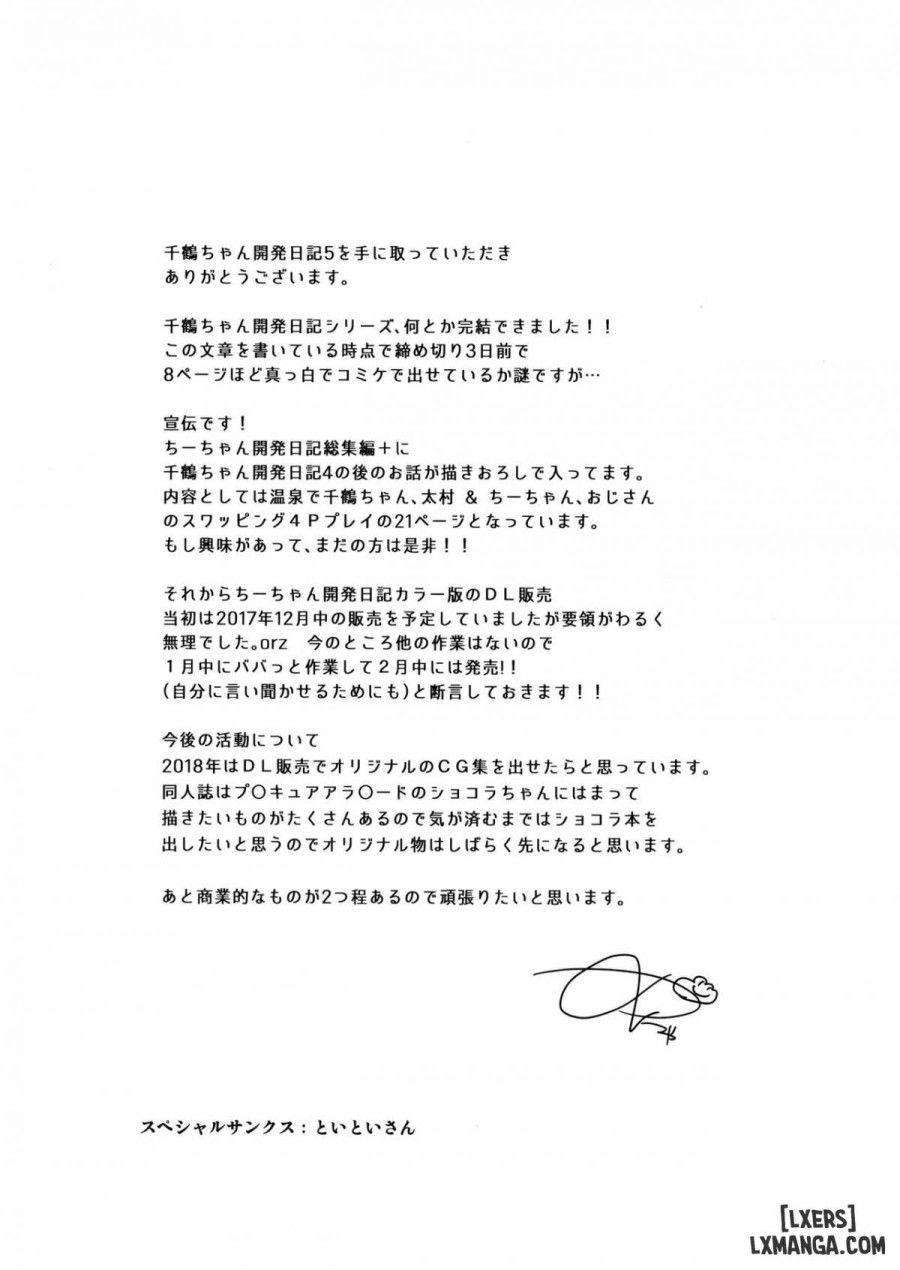 千鶴ちゃん開発日記5を手に取っていただき
ありがとうございます。
千鶴ちゃん開発日記シリーズ、何とか完結できました！！
この文章を書いている時点で締め切り3日前で
8ページほど真っ白でコミケで出せているか謎ですが…
宣伝です！
ちーちゃん開発日記総集編＋に
千鶴ちゃん開発日記4の後のお話が描きおろしで入ってます。
内容としては温泉で千鶴ちゃん、太村 ＆ ちーちゃん、おじさん
のスワッピング４Ｐプレイの21ページとなっています。
もし興味があって、まだの方は是非！！
それからちーちゃん開発日記カラー版のＤＬ販売
当初は2017年12月中の販売を予定していましたが要領がわるく
無理でした。orz　今のところ他の作業はないので
１月中にババっと作業して２月中には発売！！
(自分に言い聞かせるためにも)と断言しておきます！！
今後の活動について
2018年はＤＬ販売でオリジナルのＣＧ集を出せたらと思っています。
同人誌はプ〇キュアアラ〇ードのショコラちゃんにはまって
描きたいものがたくさんあるので気が済むまではショコラ本を
出したいと思うのでオリジナル物はしばらく先になると思います。
あと商業的なものが2つ程あるので頑張りたいと思います。
スペシャルサンクス：といといさん
[LXERS]
LXMANGA.COM